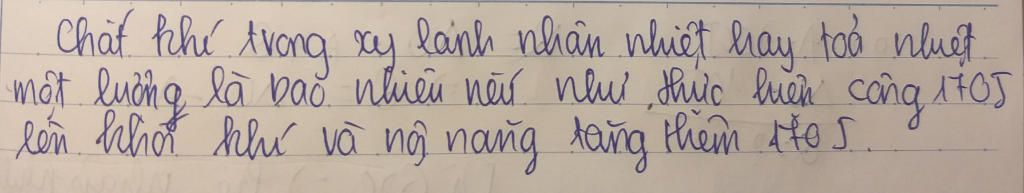 Chất khí trong xy lanh nhân nhiệt hay toả nhiệt
một lượng là bao nhiêu nếu như thực hiện công 170J
lên khối khí và nội năng tăng thêm 170J.